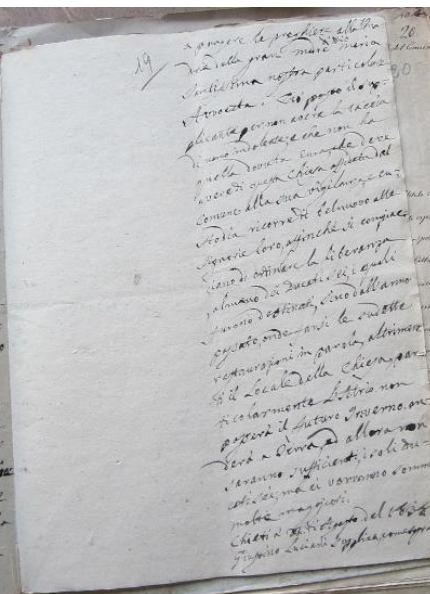 19
a porgere le preghiere alla Ma
dre della gran Madre Maria
Santissima nostra particolar
Avvocata. Ciò posto il sup
plicante per non avere la taccia
di uomo indolente, e che non ha
quella dovuta cura, che deve
avere di questa Chiesa affidata dal
Comune alla sua vigilanza, e cu
stodia ricorre di bel nuovo alle
Signorie loro, affinché si compiac
ciano di ordinare la liberanza
almeno di Ducati sei, i quali
furono destinati, sino dall'anno
passato, onde farsi le sudette
restaurazioni in parola, altrimen
ti il Locale della Chiesa, par
ticolarmente l'Atrio non
passerà il futuro Inverno, an
derà a Terra, ed allora non
saranno sufficienti i soli du
cati sei, ma ci vorranno somme
molte maggiori.
Chieti a di Agosto del 1838
Luciani supplica come sopra
20